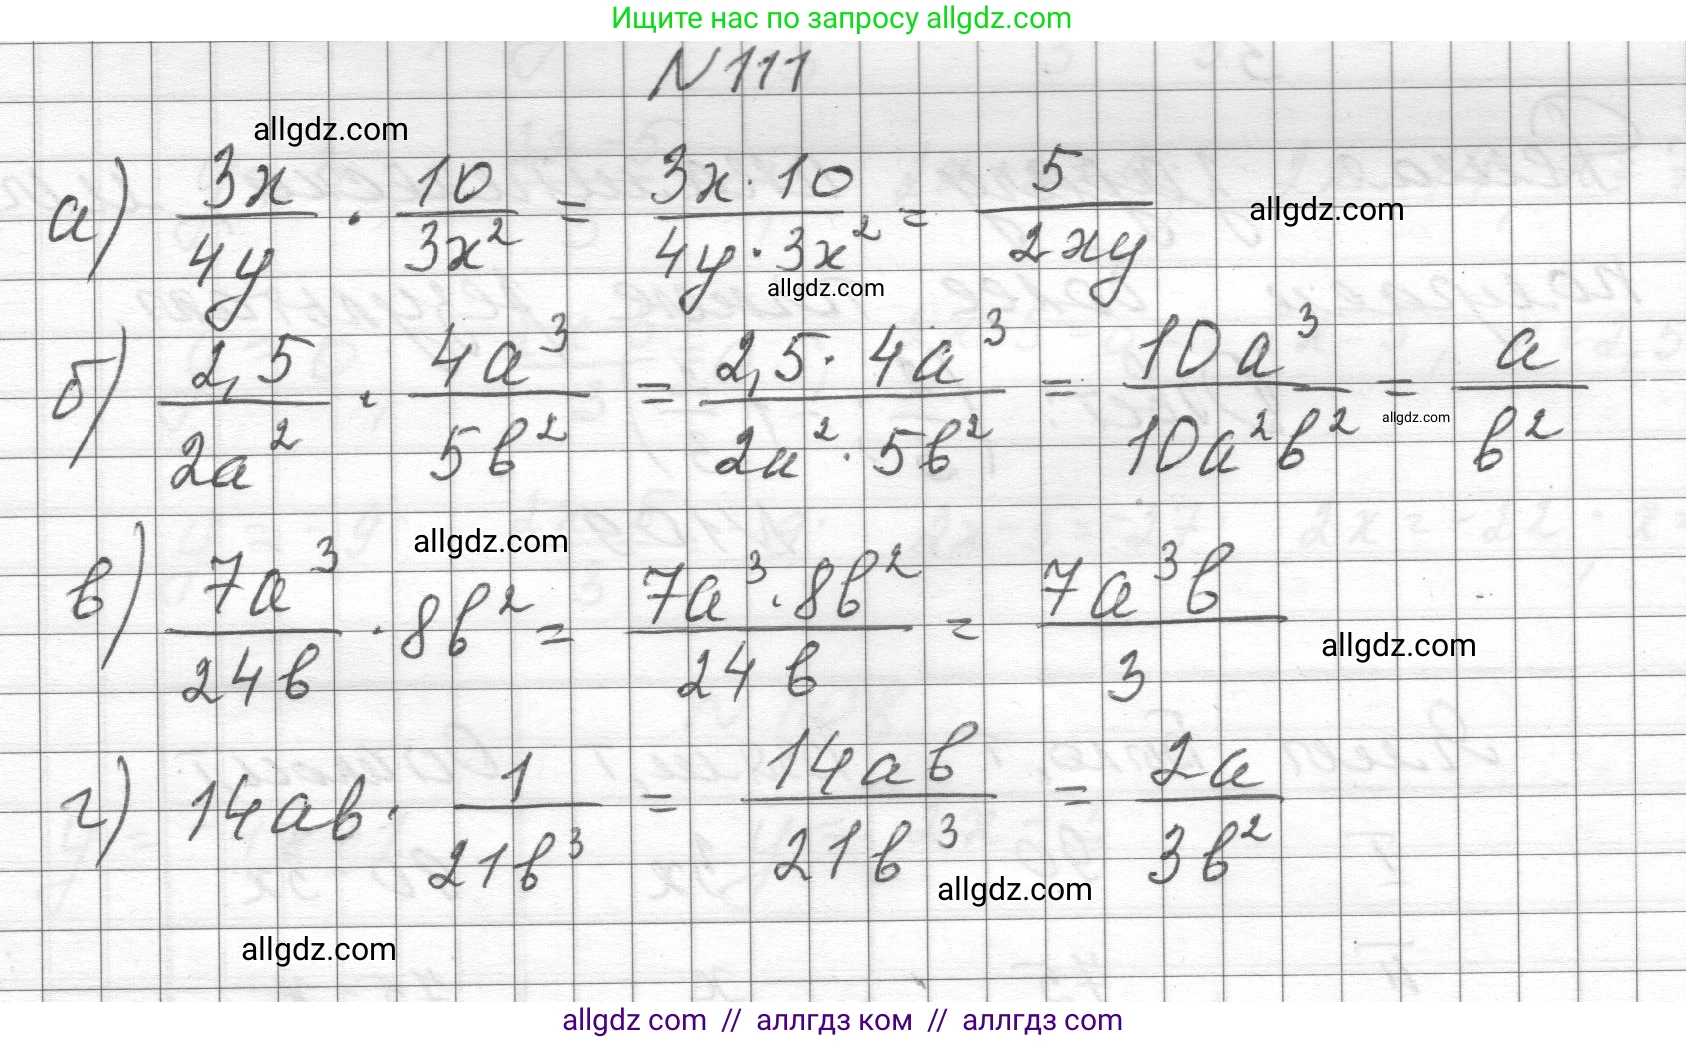 Ищите нас по запросу allgdz.com
N 111
allgdz.com
а) 3x/4y · 10/3x² = 3x·10/4y·3x² = 5/2xy
allgdz.com
allgdz.com
б) 2,5/2a² · 4a³/5b² = 2,5·4a³/2a²·5b² = 10a³/10a²b² = a/b²
allgdz.com
allgdz.com
в) 7a³/24b · 8b² = 7a³·8b²/24b = 7a³b/3
allgdz.com
г) 14ab · 1/21b³ = 14ab/21b³ = 2a/3b²
allgdz.com
allgdz.com
allgdz com // аллгдз ком // аллгдз com